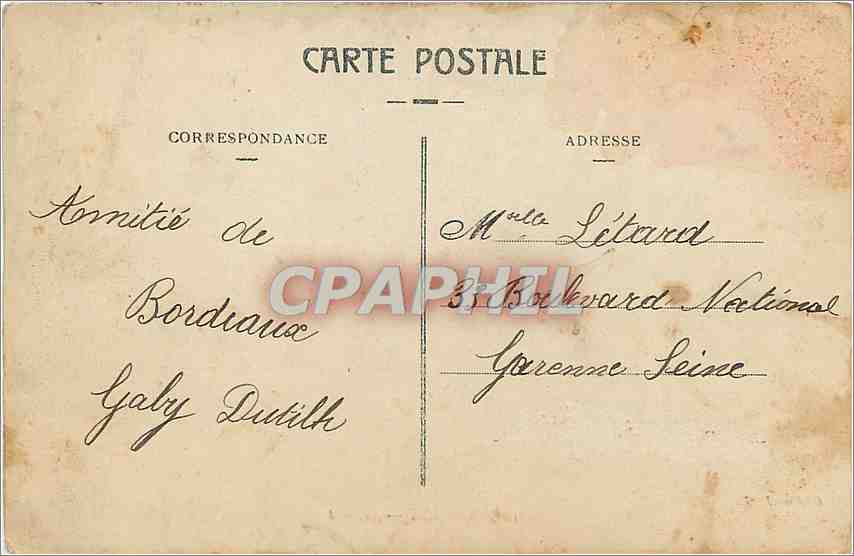 CARTE POSTALE
CORRESPONDANCE
Amitié de
Bordeaux
Gaby Dutilh
ADRESSE
Melle Létard
33 Boulevard National
Garenne Seine
CPAPHIL